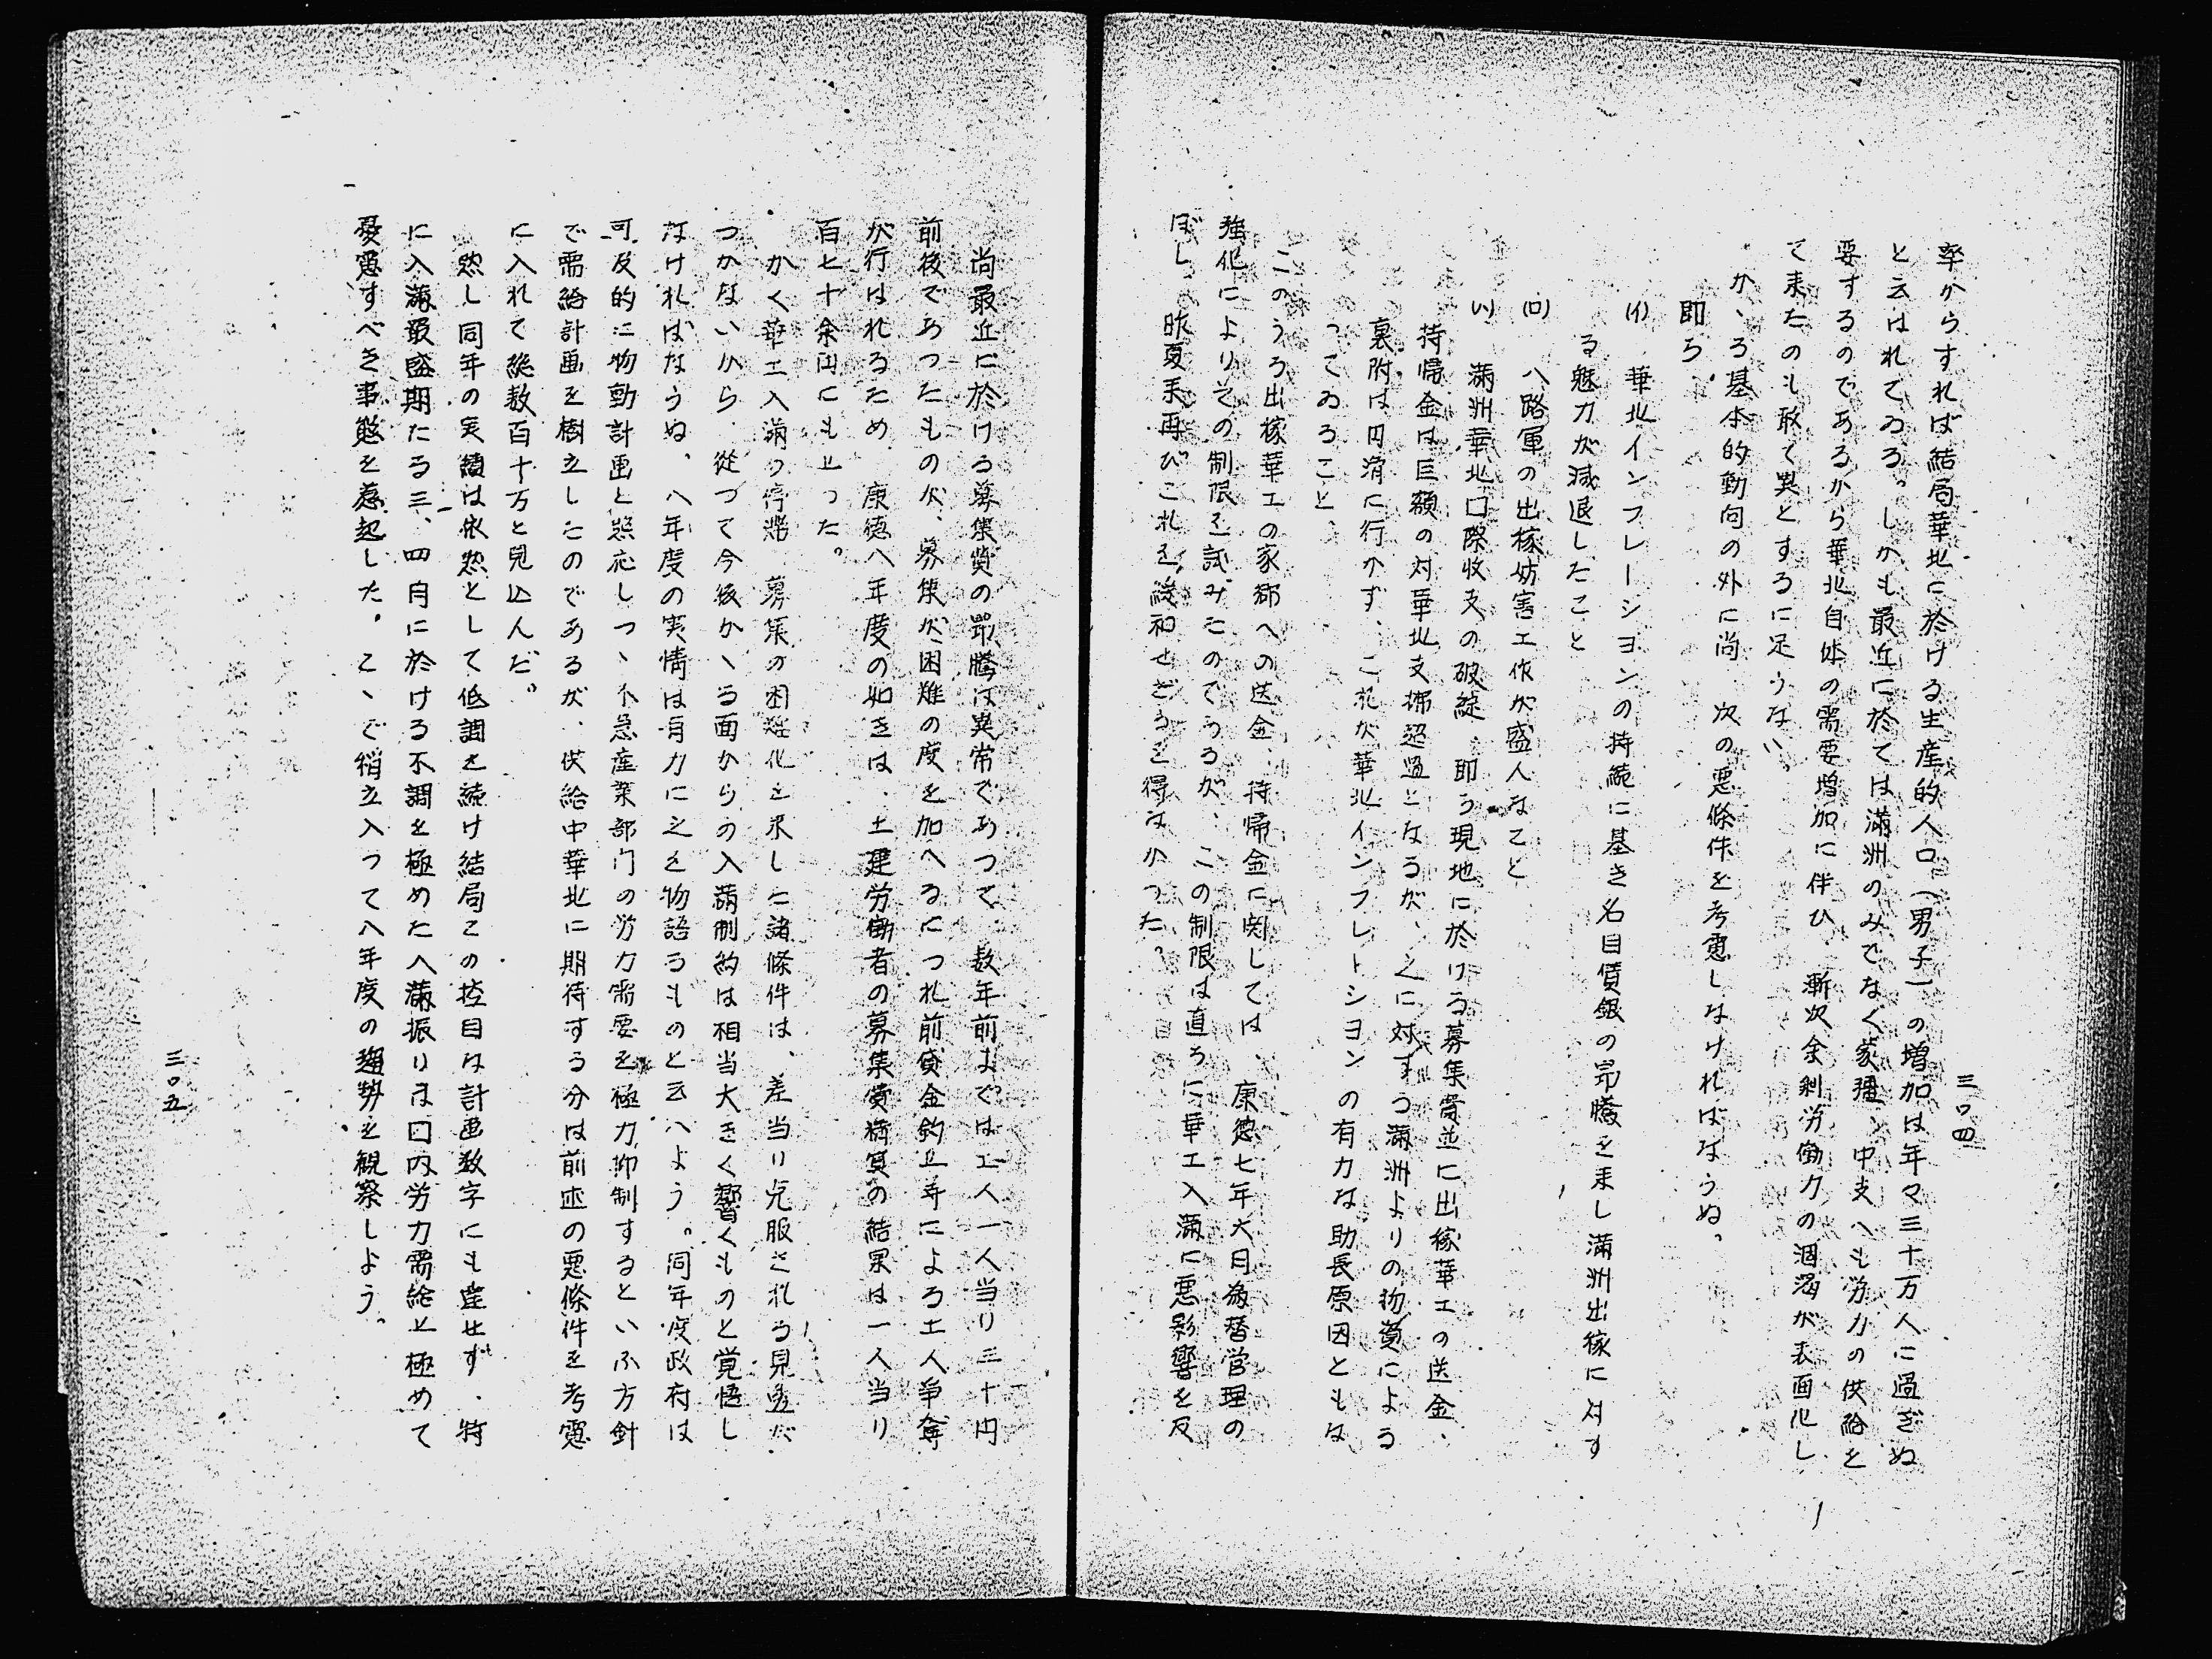 三〇四
率からすれば結局華北に於ける生産的人口(男子)の増加は年々三十万人に過ぎぬ
と云はれてゐる。しかも最近に於ては満洲のみでなく蒙疆、中支へも労力の供給を
要するのであるから華北自体の需要増加に伴ひ、漸次余剰労働力の涸渇が表面化し
て来たのも敢て異とするに足らない。
かゝる基本的動向の外に尚、次の悪條件を考慮しなければならぬ。
即ち、
(イ) 華北インフレーシヨンの持続に基き名目賃銀の昂騰を来し満洲出稼に対す
る魅力が減退したこと
(ロ) 八路軍の出稼妨害工作が盛んなこと
(ハ) 満洲華北口際收支の破綻、即ち現地に於ける募集費並に出稼華工の送金、
持帰金は巨額の対華北支拂超過となるが、之に対する満洲よりの物資による
裏附は円滑に行かず、これが華北インフレーシヨンの有力な助長原因ともな
つてゐること、
このうち出稼華工の家郷への送金、持帰金に関しては、康徳七年六月為替管理の
強化によりその制限を試みたのであるが、この制限は直ちに華工入満に悪影響を及
ぼし、昨夏来再びこれを緩和せざるを得なかつた。
尚最近に於ける募集費の昂騰は異常であつて、数年前までは工人一人当り三十円
前後であつたものが、募集が困難の度を加へるにつれ前貸金釣上等による工人争奪
が行はれるため、康徳八年度の如きは、土建労働者の募集費精算の結果は一人当り
百七十余円にも上つた。
かく華工入満の停滞、募集の困難化を来した諸條件は、差当り克服される見透が
つかないから、従つて今後かゝる面からの入満制約は相当大きく響くものと覚悟し
なければならぬ。八年度の実情は有力に之を物語るものと云へよう。同年度政府は
可及的に物動計画と照応しつゝ不急産業部门の労力需要を極力抑制するといふ方針
で需給計画を樹立したのであるが、供給中華北に期待する分は前述の悪條件を考慮
に入れて総数百十万と見込んだ。
然し同年の実績は依然として低調を続け結局この控目な計画数字にも達せず、特
に入満最盛期たる三、四月に於ける不調を極めた入満振りは口内労力需給上極めて
憂慮すべき事態を惹起した。こゝで稍立入つて八年度の趨勢を観察しよう。
三〇五